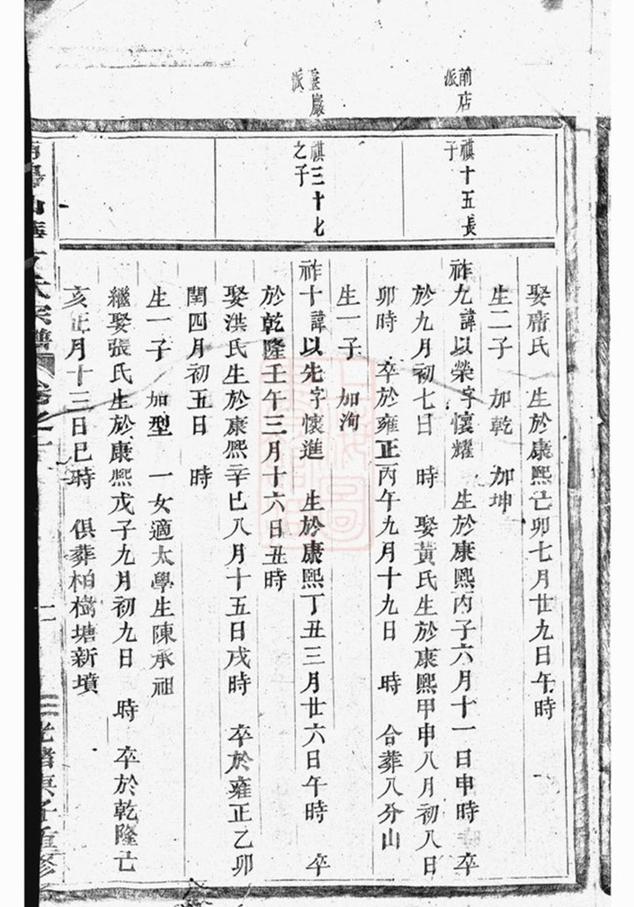 前店派
崖巖派
祺十五長子
祺三十七之子
娶唐氏 生於康熙己卯七月廿九日午時
生二子 加乾 加坤
祚九諱以榮字懷耀 生於康熙丙子六月十一日申時 卒
於九月初七日 時 娶黃氏生於康熙甲申八月初八日
卯時 卒於雍正丙午九月十九日 時 合葬八分山
生一子 加洵
祚十諱以先字懷進 生於康熙丁丑三月廿六日午時 卒
於乾隆壬午三月十六日丑時
娶洪氏生於康熙辛巳八月十五日戌時 卒於雍正乙卯
閏四月初五日 時
生一子 加型 一女適太學生陳承祖
繼娶張氏生於康熙戊子九月初九日 時 卒於乾隆己
亥正月十三日巳時 俱葬柏樹塘新墳
氏宗譜 卷之
光緒庚子重修